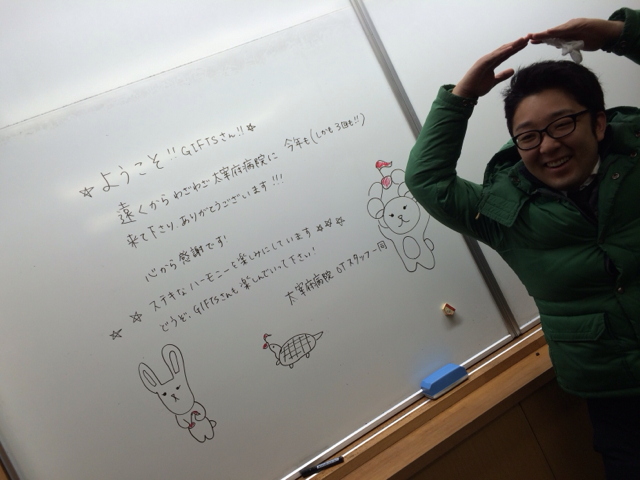 ☆ようこそ!! GIFTSさん!!☆
遠くからわざわざ太宰府病院に 今年も(しかも3回も!!)
来て下さり、ありがとうございます!!!
心から感謝です!
☆ステキなハーモニーを楽しみにしています☆☆☆
☆どうぞ、GIFTSさんも楽しんでいって下さい!
太宰府病院 OTスタッフ一同